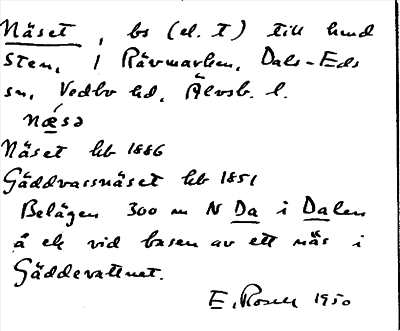 Näset, bs (el. t) till hmd
Sten, i Rävmarken, Dals-Eds
sn, Vedbo hd, Älvsb. l.
næsə
Näset hb 1886
Gäddvassnäset hb 1851
Belägen 300 m N Da i Dalen
å ek vid basen av ett näs i
Gäddevattnet.
E. Rosell 1950